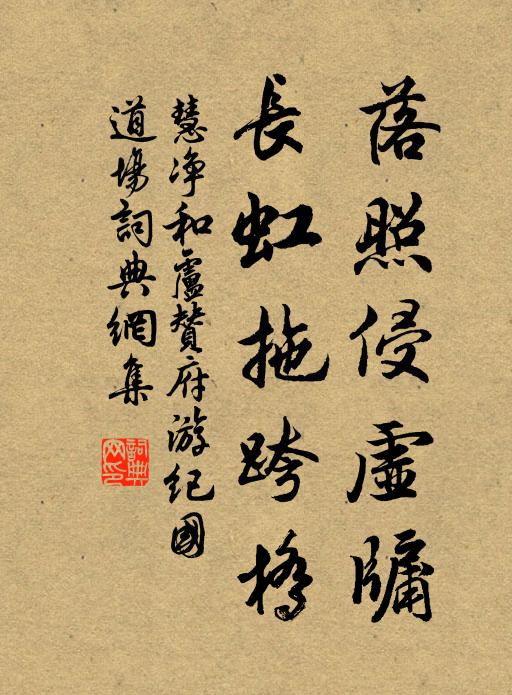 落照侵虛牖
長虹拖跨橋
慧净和盧贊府游紀國
道場詞典網集
詞典網印